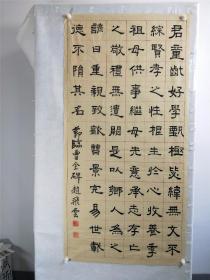 君童齔好學甄極毖緯無文不
綜賢孝之性根生於心收養季
祖母供事繼母先意承志存亡
之敬禮無遺闕是以鄉人為之
諺曰重親致歡曹景完易世載
德不隕其名 節臨曹全碑趙飛雲